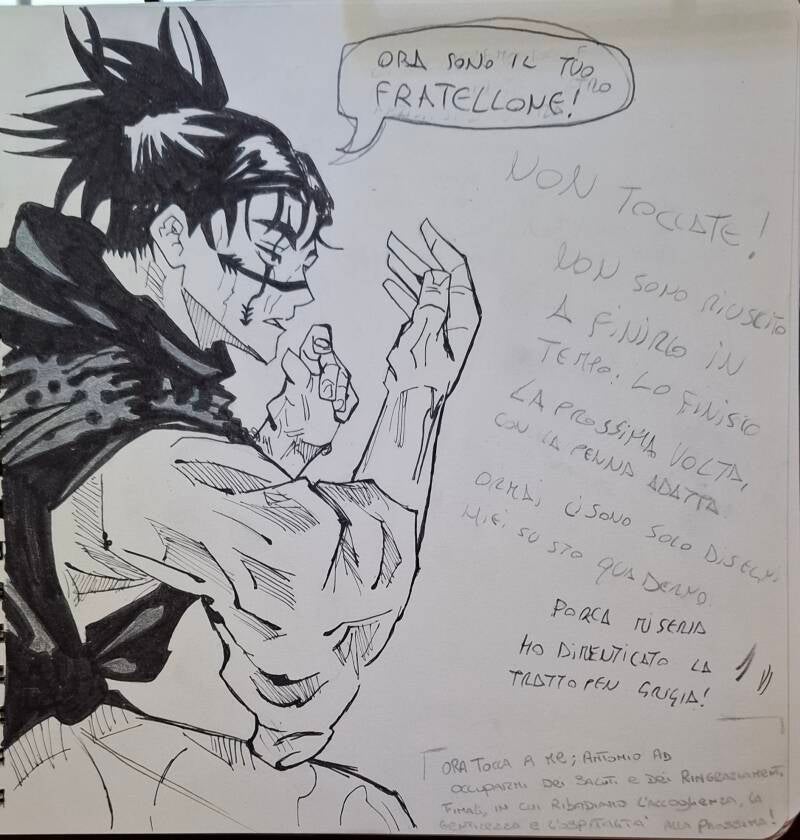 ORA SONO IL TUO
FRATELLONE!
NON TOCCATE!
NON SONO RIUSCITO
A FINIRLO IN
TEMPO. LO FINISCO
LA PROSSIMA VOLTA,
CON LA PENNA ADATTA.
ORMAI CI SONO SOLO DISEGNI
MIEI SU STO QUADERNO.
PORCA MISERIA
HO DIMENTICATO LA
TRATTO PEN GRIGIA!
ORA TOCCA A ME; ANTONIO AD
OCCUPARMI DEI SALUTI E DEI RINGRAZIAMENTI
FINALI, IN CUI RIBADIAMO L'ACCOGLIENZA, LA
GENTILEZZA E L'OSPITALITÀ ALLA PROSSIMA!